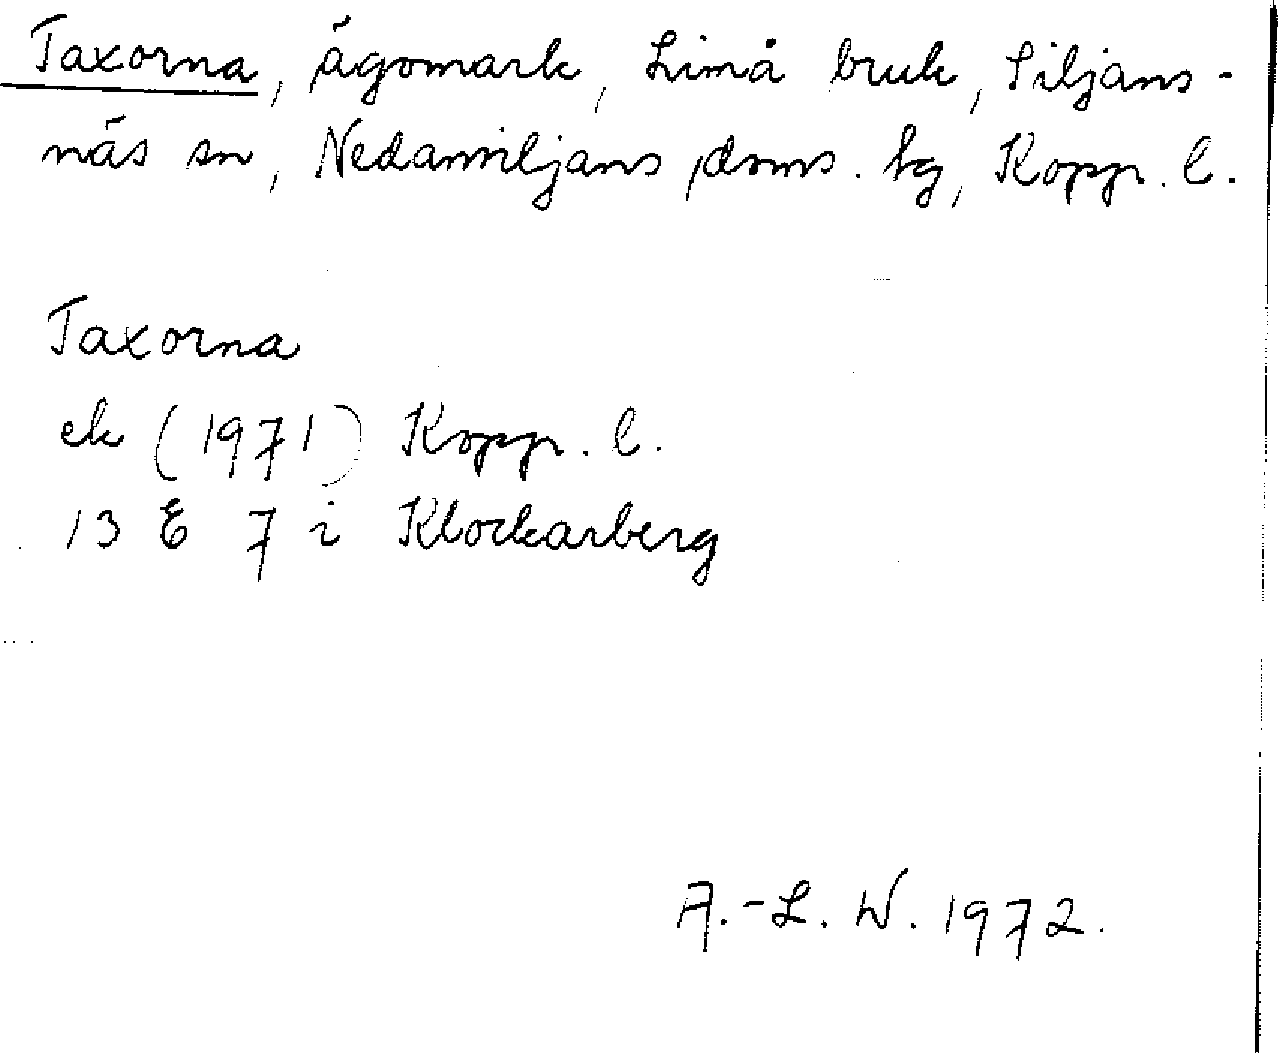 Taxorna, ägomark, Limå bruk, Siljans-
näs sn, Nedansiljans doms. tg, Kopp. l.
Taxorna
ek (1971) Kopp. l.
13 E 7 i Klockarberg
A.-L. W. 1972.